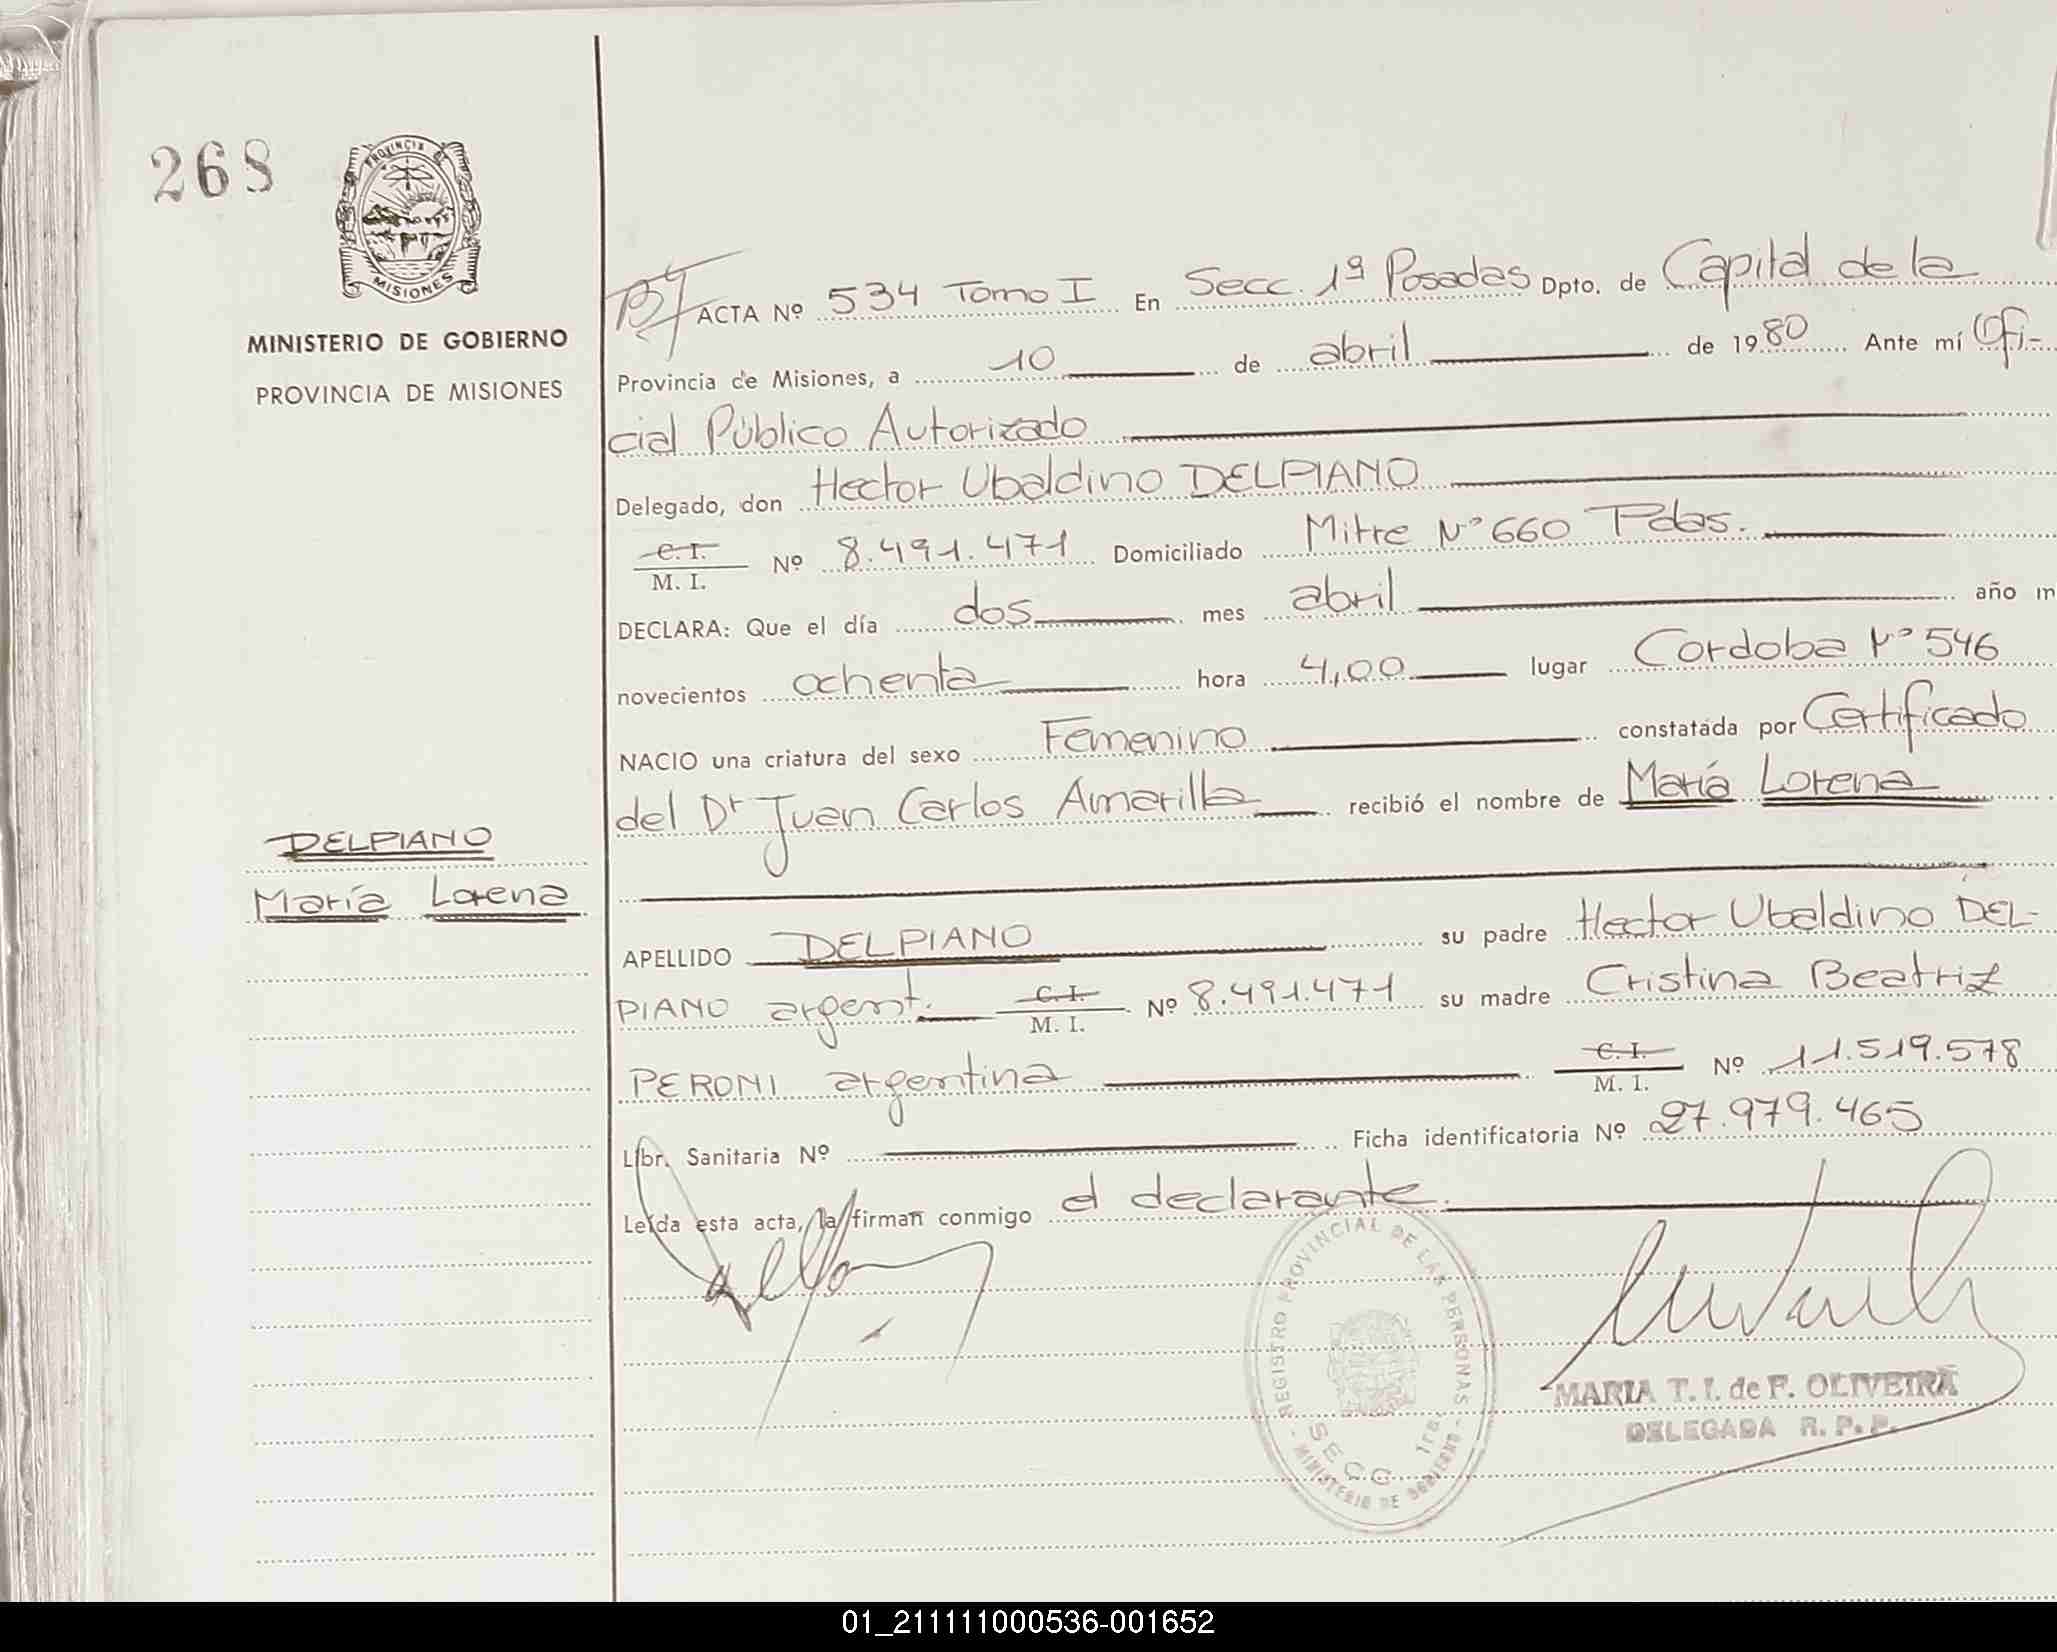 268
PROVINCIA DE
MISIONES
MINISTERIO DE GOBIERNO
PROVINCIA DE MISIONES
ACTA Nº 534 Tomo I En Secc. 1ª Posadas Dpto. de Capital de la
Provincia de Misiones, a 10 de abril de 1980 Ante mí Ofi-
cial Público Autorizado
Delegado, don Hector Ubaldino DELPIANO
C. I.
M. I. Nº 8.491.471 Domiciliado Mitre Nº 660 Pdas.
DECLARA: Que el día dos mes abril año m
novecientos ochenta hora 4,00 lugar Cordoba Nº 546
NACIO una criatura del sexo Femenino constatada por Certificado
del Dr Juan Carlos Amarilla recibió el nombre de María Lorena
DELPIANO
María Lorena
APELLIDO DELPIANO su padre Hector Ubaldino DEL-
PIANO argent. C. I. M. I. Nº 8.491.471 su madre Cristina Beatriz
PERONI argentina C. I. M. I. Nº 11.519.578
Libr. Sanitaria Nº Ficha identificatoria Nº 27.979.465
Leída esta acta, la firman conmigo el declarante.
REGISTRO PROVINCIAL DE LAS PERSONAS
SECC. 1ra.
- MINISTERIO DE GOBIERNO -
MARIA T. I. de F. OLIVEIRA
DELEGADA R. P. P.
01_211111000536-001652